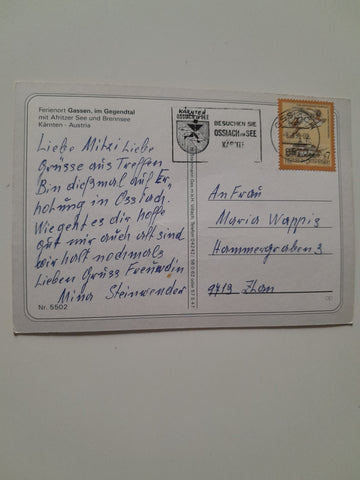 Ferienort Gassen, im Gegendtal
mit Afritzer See und Brennsee
Kärnten - Austria
Liebe Mitzi Liebe
Grüsse aus Treffen
Bin dießmal auf Er,,
holung in Ossiach.
Wie geht es dir hoffe
gut mir auch alt sind
wir halt nochmals
Lieben Gruss Freundin
Mina Steinwender
Nr. 5502
KÄRNTEN
OSSIACH am SEE
BESUCHEN SIE
OSSIACH am SEE
KÄRNTEN
An Frau
Maria Wappis
Hammergraben 3
9713 Zlan